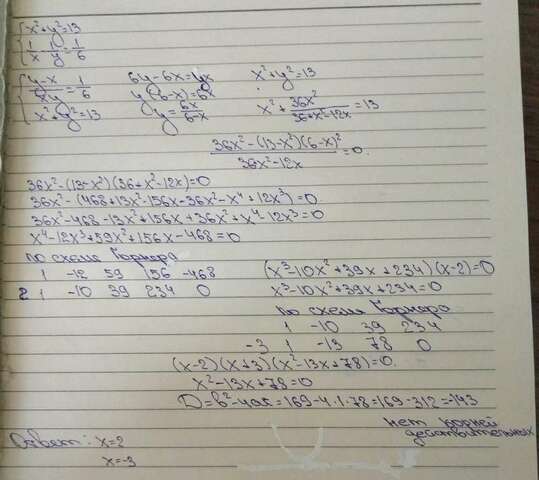 x²+y²=13
1/x - 1/y = 1/6
y-x/xy = 1/6   6y-6x=yx   x²+y²=13
x²+y²=13   y(6-x)=6x
y= 6x/6-x   x²+ 36x²/36+x²-12x =13
36x²-(13-x²)(6-x)²/36x²-12x =0.
36x²-(13-x²)(36+x²-12x)=0
36x²-(468+13x²-156x-36x²-x⁴+12x³)=0
36x²-468-13x²+156x+36x²+x⁴-12x³=0
x⁴-12x³+59x²+156x-468=0
по схеме Горнера
1 -12 59 156 -468   (x³-10x²+39x+234)(x-2)=0
2 1 -10 39 234 0   x³-10x²+39x+234=0
по схеме Горнера
1 -10 39 234
-3 1 -13 78 0
(x-2)(x+3)(x²-13x+78)=0.
x²-13x+78=0
D=b²-4ac=169-4·1·78=169-312=-143
нет корней
действительных
Ответ: x=2
x=-3